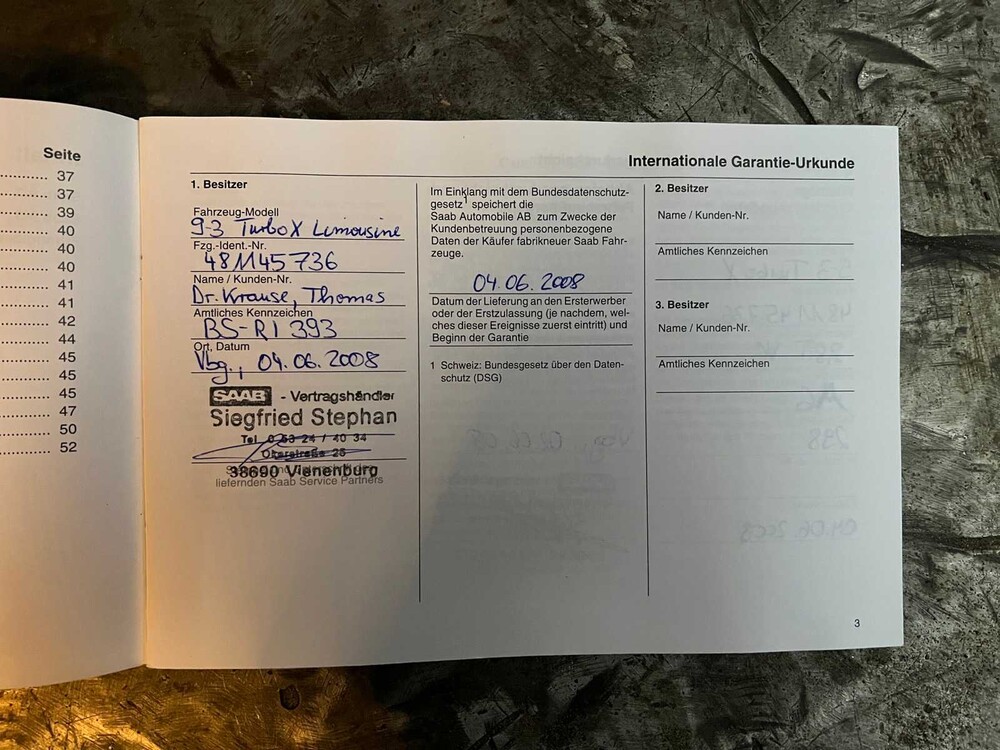 Seite
37
37
39
40
40
40
41
41
42
44
45
45
45
47
50
52
Internationale Garantie-Urkunde
1. Besitzer
Fahrzeug-Modell
9-3 Turbo X Limousine
Fzg.-Ident.-Nr.
481145736
Name / Kunden-Nr.
Dr. Krause, Thomas
Amtliches Kennzeichen
BS-RI 393
Ort, Datum
Vbg., 04.06.2008
SAAB - Vertragshändler
Siegfried Stephan
Tel. 0 53 24 / 40 34
Okerstraße 25
38690 Vienenburg
liefernden Saab Service Partners
Im Einklang mit dem Bundesdatenschutz-
gesetz1 speichert die
Saab Automobile AB zum Zwecke der
Kundenbetreuung personenbezogene
Daten der Käufer fabrikneuer Saab Fahr-
zeuge.
04.06.2008
Datum der Lieferung an den Ersterwerber
oder der Erstzulassung (je nachdem, wel-
ches dieser Ereignisse zuerst eintritt) und
Beginn der Garantie
1 Schweiz: Bundesgesetz über den Daten-
schutz (DSG)
2. Besitzer
Name / Kunden-Nr.
Amtliches Kennzeichen
3. Besitzer
Name / Kunden-Nr.
Amtliches Kennzeichen
3